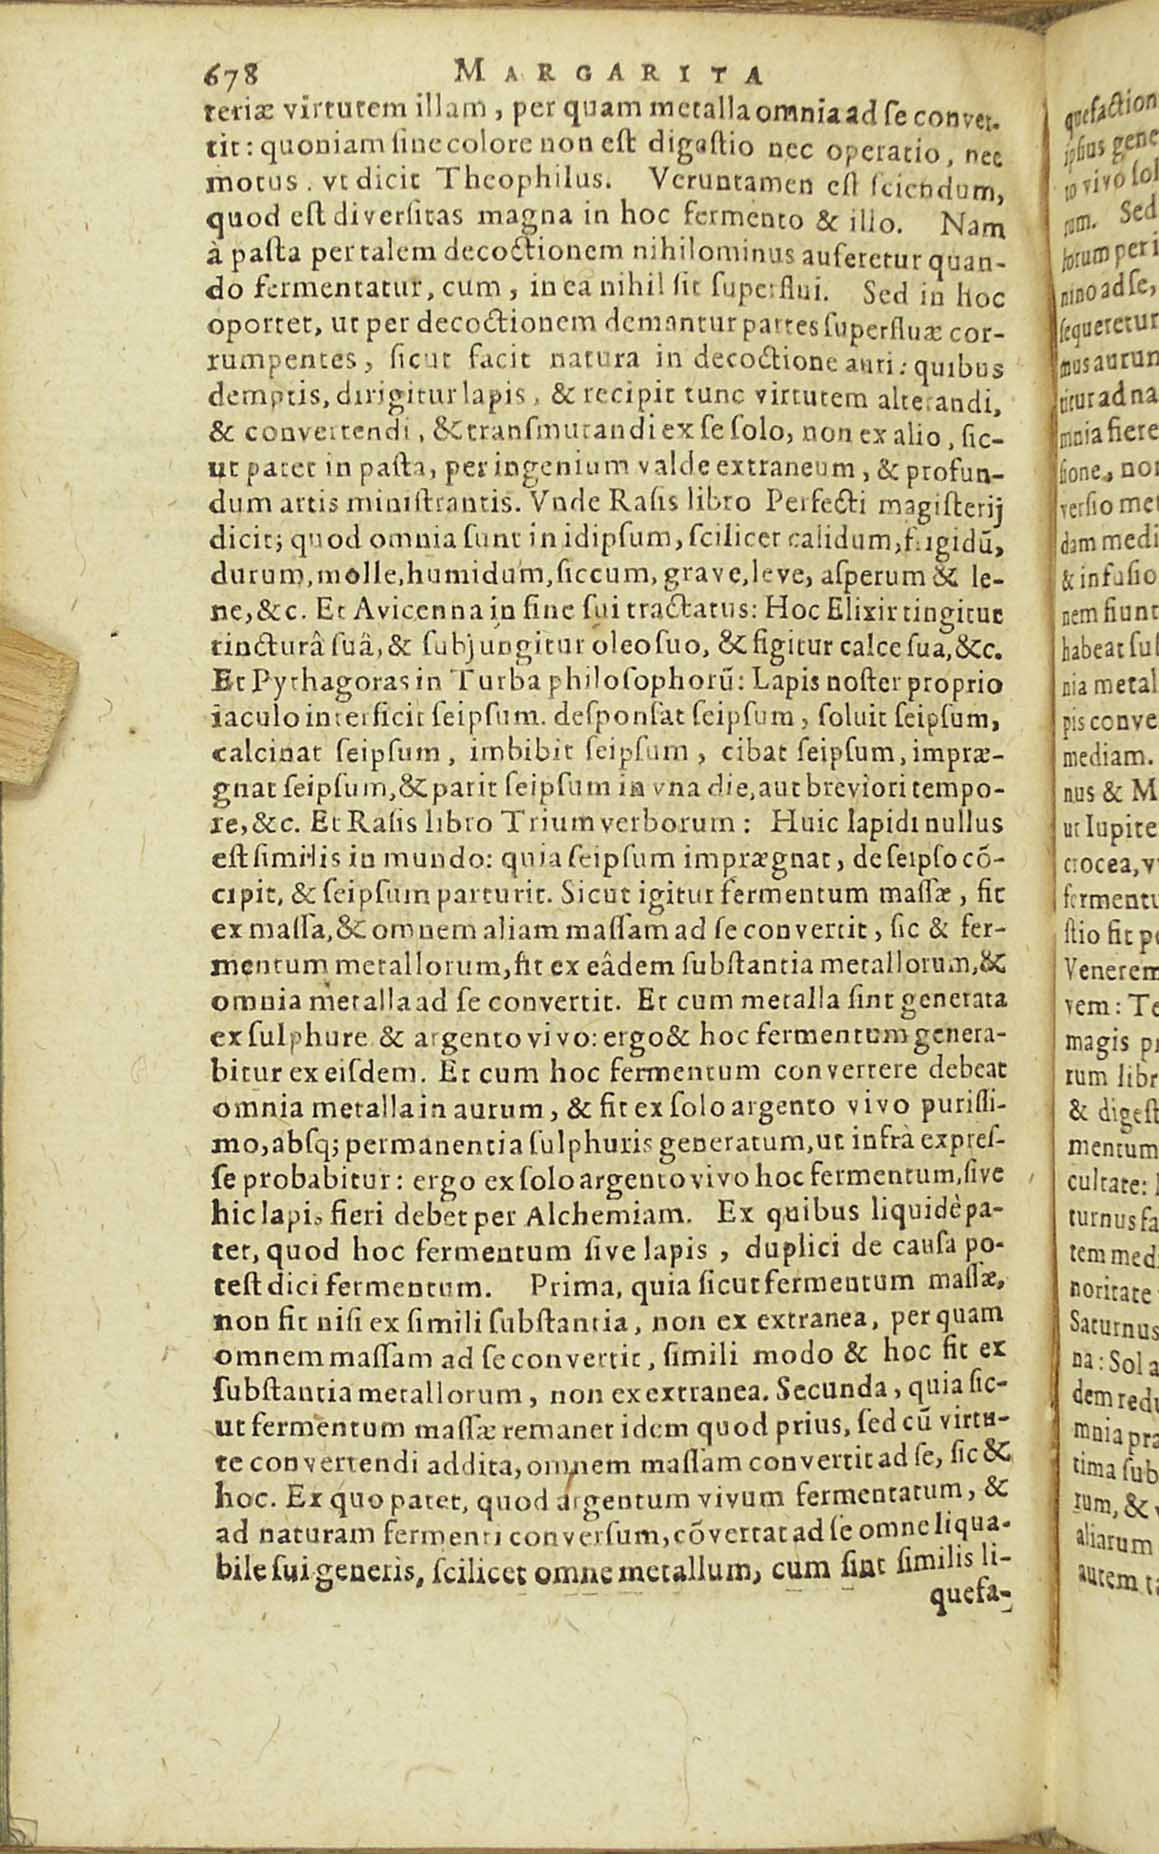 678 MARGARITA
teriæ virtutem illam, per quam metalla omnia ad se conver-
tit: quoniam sine colore non est digestio nec operatio, nec
motus. vt dicit Theophilus. Veruntamen est sciendum,
quod est diversitas magna in hoc fermento & illo. Nam
à pasta per talem decoctionem nihilominus auferetur quan-
do fermentatur, cum, in ea nihil sit superflui. Sed in hoc
oportet, ut per decoctionem demantur partes superfluæ cor-
rumpentes, sicut facit natura in decoctione auri: quibus
demptis, dirigitur lapis, & recipit tunc virtutem alterandi,
& convertendi, & transmutandi ex se solo, non ex alio, sic-
ut patet in pasta, per ingenium valde extraneum, & profun-
dum artis ministrantis. Vnde Rasis libro Perfecti magisterij
dicit; quod omnia sunt in idipsum, scilicet calidum, frigidũ,
durum, molle, humidum, siccum, grave, leve, asperum & le-
ne, &c. Et Avicenna in fine sui tractatus: Hoc Elixir tingitur
tincturâ suâ, & subjungitur oleo suo, & figitur calce sua, &c.
Et Pythagoras in Turba philosophorũ: Lapis noster proprio
iaculo interficit seipsum. desponsat seipsum, soluit seipsum,
calcinat seipsum, imbibit seipsum, cibat seipsum, impræ-
gnat seipsum, & parit seipsum in vna die, aut breviori tempo-
re, &c. Et Rasis libro Trium verborum: Huic lapidi nullus
est similis in mundo: quia seipsum imprægnat, de seipso cõ-
cipit, & seipsum parturit. Sicut igitur fermentum massæ, fit
ex massa, & omnem aliam massam ad se convertit, sic & fer-
mentum metallorum, fit ex eâdem substantia metallorum, &
omnia metalla ad se convertit. Et cum metalla sint generata
ex sulphure & argento vivo: ergo & hoc fermentum genera-
bitur ex eisdem. Et cum hoc fermentum convertere debeat
omnia metalla in aurum, & fit ex solo argento vivo purissi-
mo, absq; permanentia sulphuris generatum, ut infrà expres-
se probabitur: ergo ex solo argento vivo hoc fermentum, sive
hic lapis fieri debet per Alchemiam. Ex quibus liquidè pa-
tet, quod hoc fermentum sive lapis, duplici de causa po-
test dici fermentum. Prima, quia sicut fermentum massæ,
non fit nisi ex simili substantia, non ex extranea, per quam
omnem massam ad se convertit, simili modo & hoc fit ex
substantia metallorum, non ex extranea. Secunda, quia sic-
ut fermentum massæ remanet idem quod prius, sed cũ virtu-
te convertendi addita, omnem massam convertit ad se, sic &
hoc. Ex quo patet, quod argentum vivum fermentatum, &
ad naturam fermenti conversum, cõvertat ad se omne liqua-
bile sui generis, scilicet omne metallum, cum sint similis li-
quefa-
quefaction
ipsius gene
to vivo sol
rum. Sed
lorum peri
nino ad se,
sequeretur
mus aurum
titur ad na
mnia fiere
sione, non
versio met
dam medi
& infusio
nem fiunt
habeat sul
nia metal
pis conve
mediam.
nus & M
ut Iupite
crocea, v
fermentu
stio fit pe
Venerem
vem: Te
magis pr
rum libr
& digest
mentum
cultate:
turnus fa
tem med
noritate
Saturnus
na: Sol a
dem redu
mnia pra
tima sub
rum, & v
aliarum
autem ta